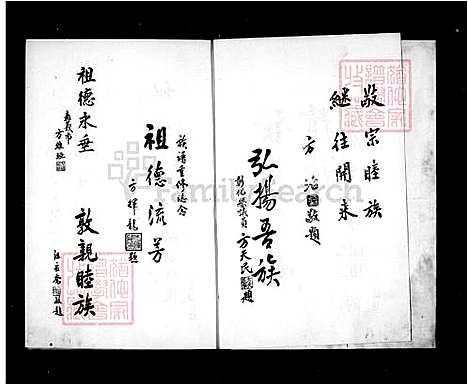 敬宗睦族
繼往開來
方治敬題
弘揚吾族
彰化縣議員 方天民題
族譜重修誌念
祖德流芳
方輝龍題
敦親睦族
祖德永垂
嘉義市
FamilySearch